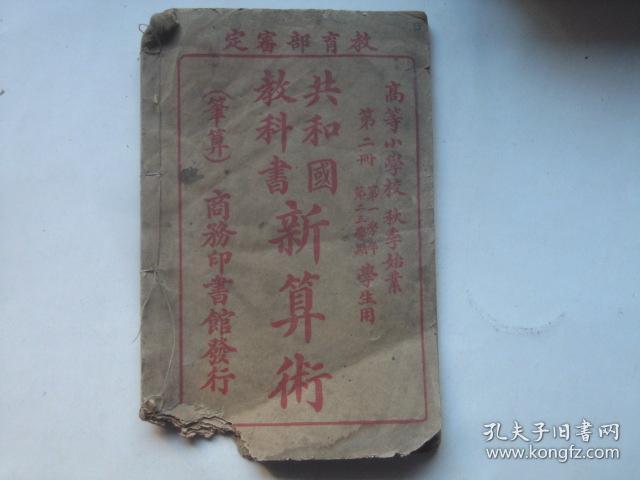 教育部審定
高等小學校秋季始業
第二冊
第一學年
第二三學期
學生用
共和國
教科書
新算術
（筆算）
商務印書館發行
孔夫子旧书网
www.kongfz.com